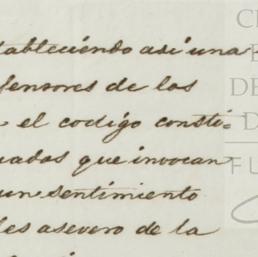 tableciendo así una
fensores de los
el codigo consti-
uadas que invocan
un sentimiento
les asevero de la